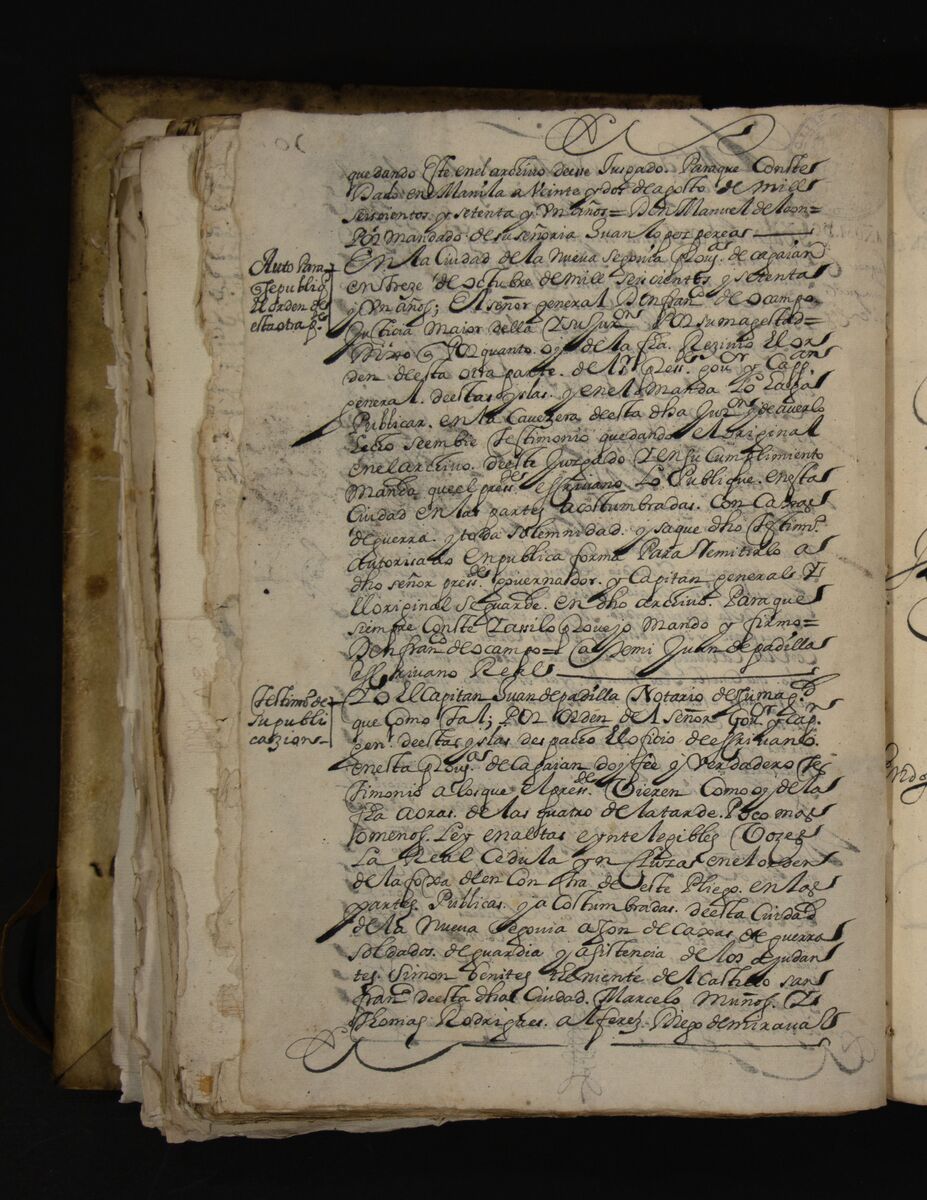 quedando este en el archivo deese Juzgado. Para que Conste
Dado en Manila a Veinte y dos de agosto de mill
seiscientos y setenta y Un años= Don Manuel de leon=
Por mandado de su señoria Juan lopez pereas
Auto Para
republiq
el orden de
esta otra pe.
En la Ciudad de la nueva segovia Provas. de cagaian
en treze de octubre de mille seiscientos y setenta
y Un años; el señor general Don fran. de ocampo
Justicia maior della Y su Juron. Por su magestad=
Dixo q Por quanto. oy de la fha. Rezivio El or
den de esta otra parte. del sr Press. gour. y Capan
general. de estas yslas. y en el manda Lo haga
Publicar. en la Cavezera de esta dha Juron. y de averlo
hecho se embie testimonio quedando el original
en el archivo. de este Juzgado Y en su Cumplimiento
Manda que el press. escrivano. Lo Publique. en esta
Ciudad en las partes acostumbradas. Con Caxas
de guerra. y toda solemnidad. y saque dho testimo
autorisado en publica forma Para Remitirlo a
dho señor press.te governador. y Capitan general Y
El original se guarde. en dho archivo. Para que
siempre Conste Y assi lo Proveyo mando y firmo=
Don franco de ocampo= Ante mi Juan de padilla
escrivano Real
Testimo de
su publi
cazion=
Yo El Capitan Juan de padilla Notario de su magd.
que Como tal; Por orden del señor Gour. y Cap.
gen. de estas yslas despacho El oficio de escrivano.
en esta Provas. de Cagaian doy fee y Verdadero tes
timonio a los que el press.te Vieren Como oy de la
fha a oras. de las quatro de la tarde. Poco mas
o menos. Ley en altas e yntelegibles Vozes
La Real Cedula y en en el orden
de la foxa de en Contra de este Pliego. en las
partes. Publicas. y acostumbradas. de esta Ciudad
de la Nueva segovia a son de Caxas de guerra
soldados. de guardia y asistencia de los ayudan
tes. Simon benites teniente del Castillo san
fran. de esta dha Ciudad. Marcelo Muños. Y
thomas Rodrigues. alferez. Diego de miraval